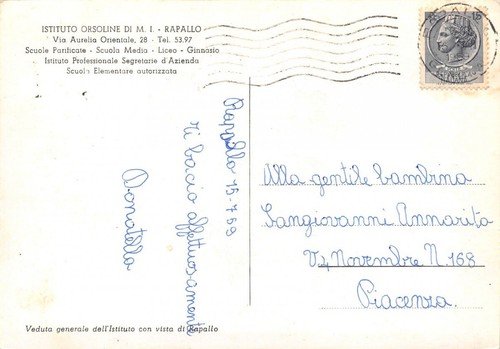 ISTITUTO ORSOLINE DI M. I. - RAPALLO
Via Aurelia Orientale, 28 - Tel. 53.97
Scuole Parificate - Scuola Media - Liceo - Ginnasio
Istituto Professionale Segretarie d'Azienda
Scuola Elementare autorizzata
Rapallo 15-7-59
Ti bacio affettuosamente
Donatella
Alla gentile bambina
Sangiovanni Annarita
V 4 Novembre N. 168
Piacenza.
Veduta generale dell'Istituto con vista di Rapallo